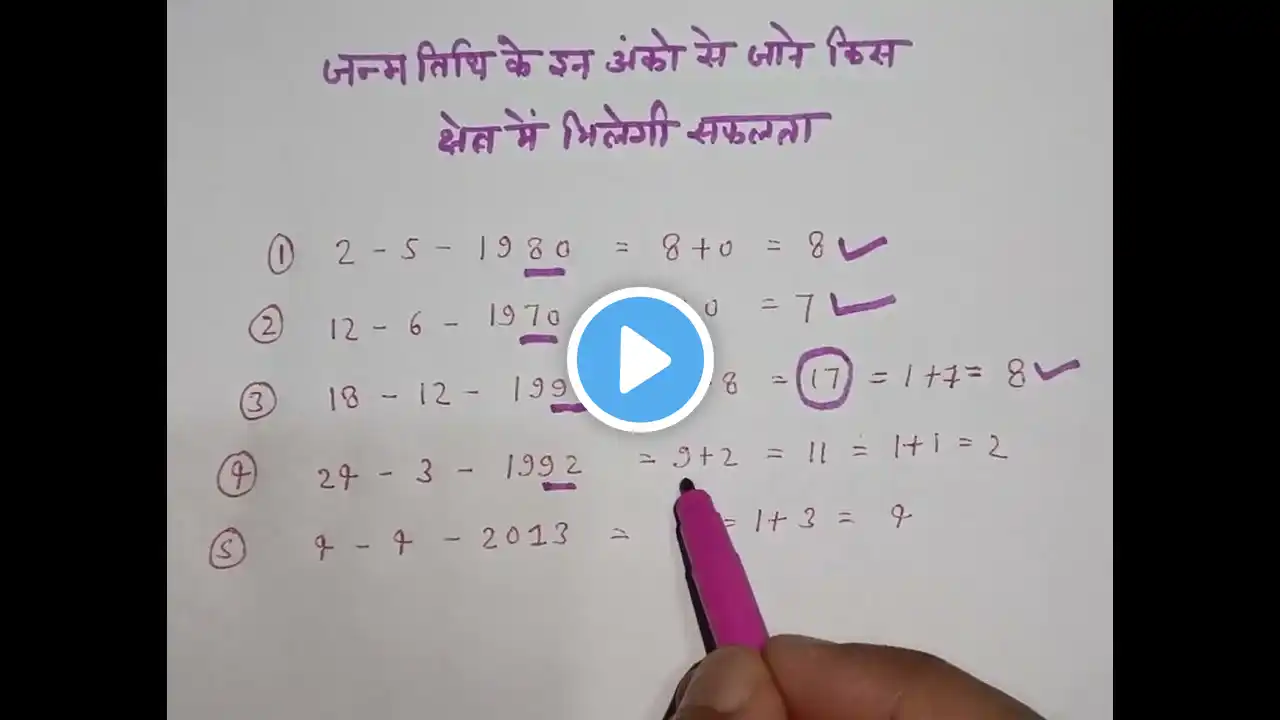 जन्म तिथि के इन अंको से जाने किस
क्षेत्र में मिलेगी सफलता
① 2 - 5 - 1980 = 8+0 = 8 ✓
② 12 - 6 - 1970 0 = 7 ✓
③ 18 - 12 - 199 8 = 17 = 1+7= 8 ✓
④ 24 - 3 - 1992 = 9+2 = 11 = 1+1 = 2
⑤ 4 - 4 - 2013 = = 1+3 = 4